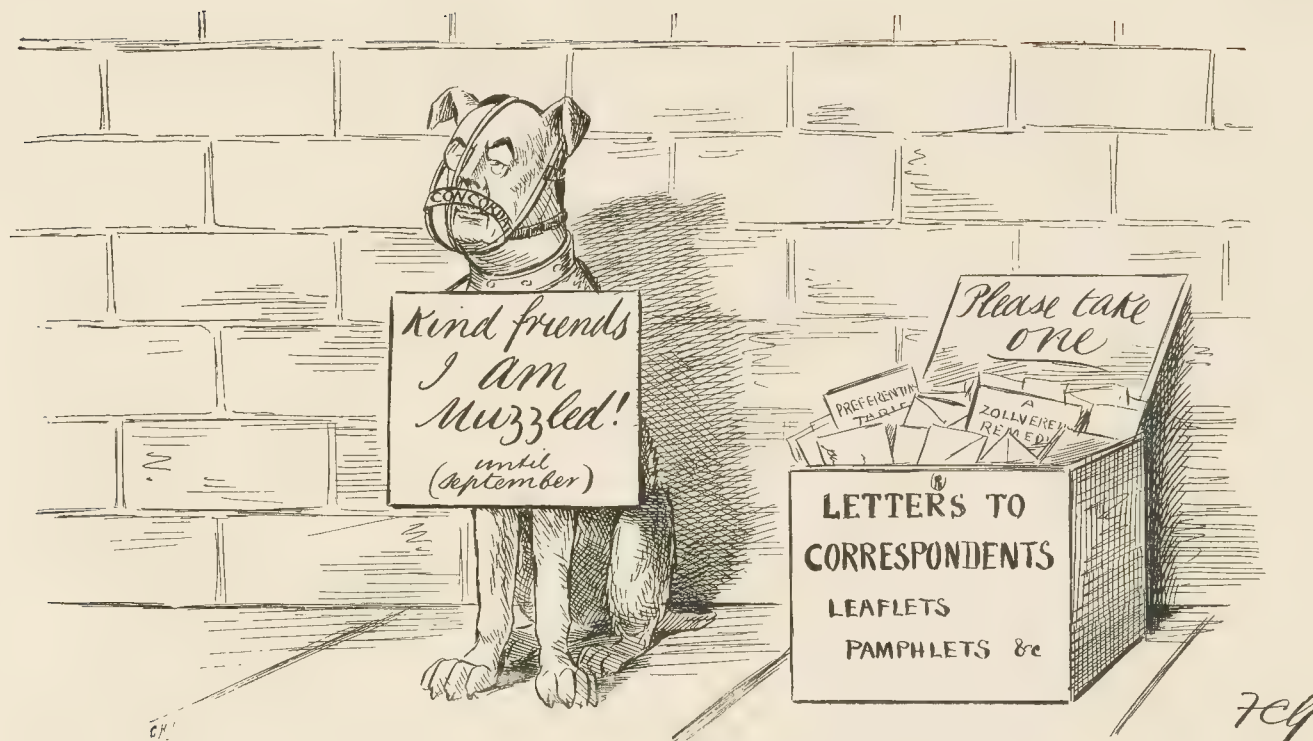 CONCORDIA
Kind friends
I am
Muzzled!
until
(September)
Please take
one
PREFERENTIAL
A
ZOLLVEREIN
REMEDY
LETTERS TO
CORRESPONDENTS
LEAFLETS
PAMPHLETS &c
FCG